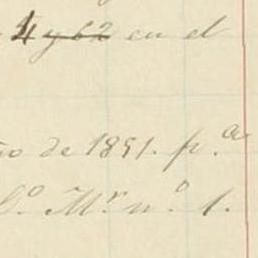 4 y 62 en el
ño de 1891. p.a
Mr. n.o 1.